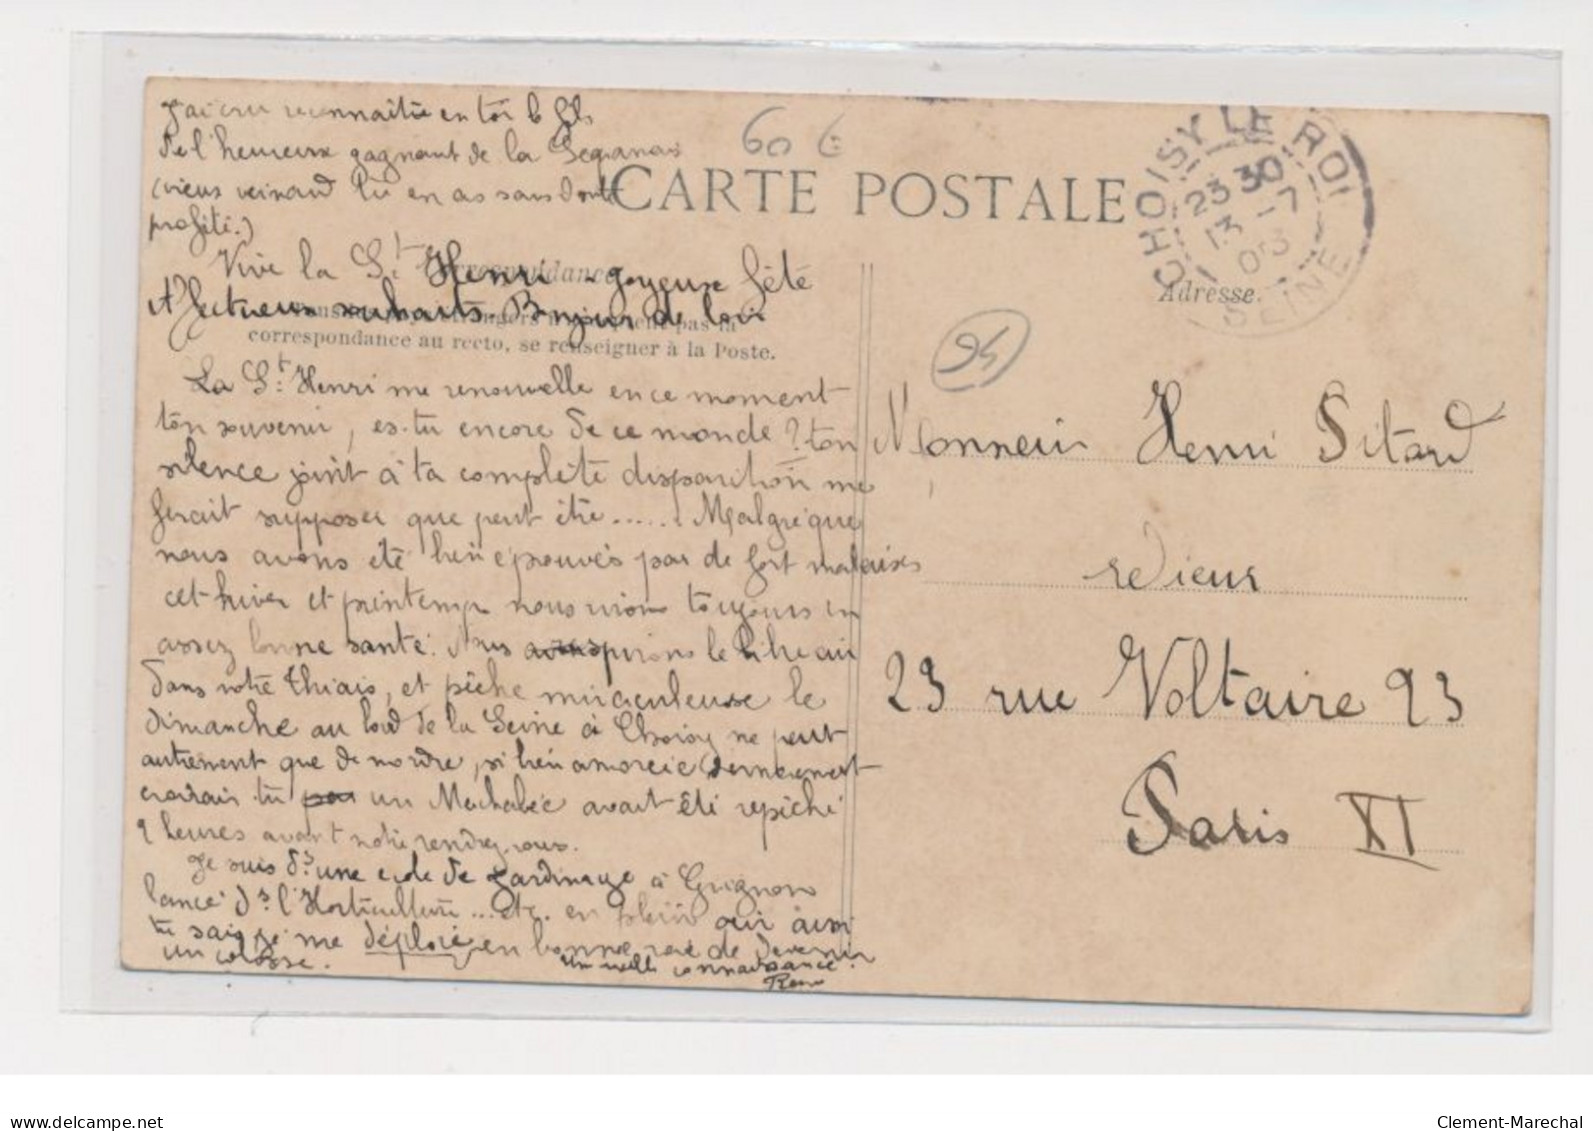 J'ai cru reconnaitre en toi le fils
de l'heureux gagnant de la
(vieux veinard tu en as sans doute
profité.)
60 €
CARTE POSTALE
CHOISY LE ROI
23 30
13 -7
SEINE
Vive la St Henri - Joyeuse fête
Correspondance
Affectueux souhaits. Bonjour de loin
correspondance au recto, se renseigner à la Poste.
Adresse.
94
La St. Henri me renouvelle en ce moment
ton souvenir, es-tu encore de ce monde ? ton
silence joint à ta complète disparition me
ferait supposer que peut être ...... Malgré que
nous avons été bien éprouvés par de fort mauvais
cet hiver et printemps nous vivons toujours en
assez bonne santé. Nous aspirons le libre air
dans notre Thiais, et pêche miraculeuse le
dimanche au bord de la Seine à Choisy ne peut
autrement que de mordre, si bien amorcé (dernièrement
croirais-tu par un Machabée avait été repêché
2 heures avant notre rendez-vous.
Je suis ds une école de Jardinage à Grignon
lancé ds l'Horticulture ... etc. en plein air aussi
tu sais je me déploie en bonne voie de devenir
un colosse.
Une vieille connaissance.
Monsieur Henri Pitard
relieur
23 rue Voltaire 23
Paris XI
www.delcampe.net
Clement-Marechal